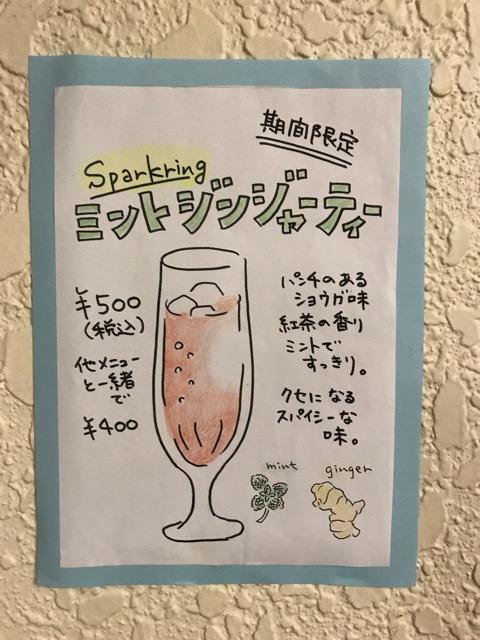 期間限定
Sparkring
ミントジンジャーティー
¥500
(税込)
他メニュー
と一緒
で
¥400
パンチのある
ショウガ味
紅茶の香り
ミントで
すっきり。
クセになる
スパイシーな
味。
mint
ginger